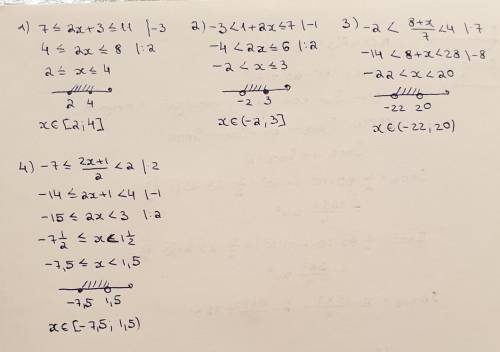 1) 7 ≤ 2x+3 ≤ 11 |-3
4 ≤ 2x ≤ 8 |:2
2 ≤ x ≤ 4
2 4
x∈[2;4]
2) -3<1+2x≤7 |-1
-4<2x≤6 |:2
-2 < x ≤ 3
-2 3
x∈(-2;3]
3) -2 < \frac{8+x}{7} <4 |·7
-14 < 8+x<28 |-8
-22 < x < 20
-22 20
x∈(-22;20)
4) -7 ≤ \frac{2x+1}{2} < 2 | 2
-14 ≤ 2x+1 <4 |-1
-15 ≤ 2x < 3 |:2
-7 1/2 ≤ x < 1 1/2
-7,5 ≤ x < 1,5
-7,5 1,5
x∈[-7,5; 1,5)